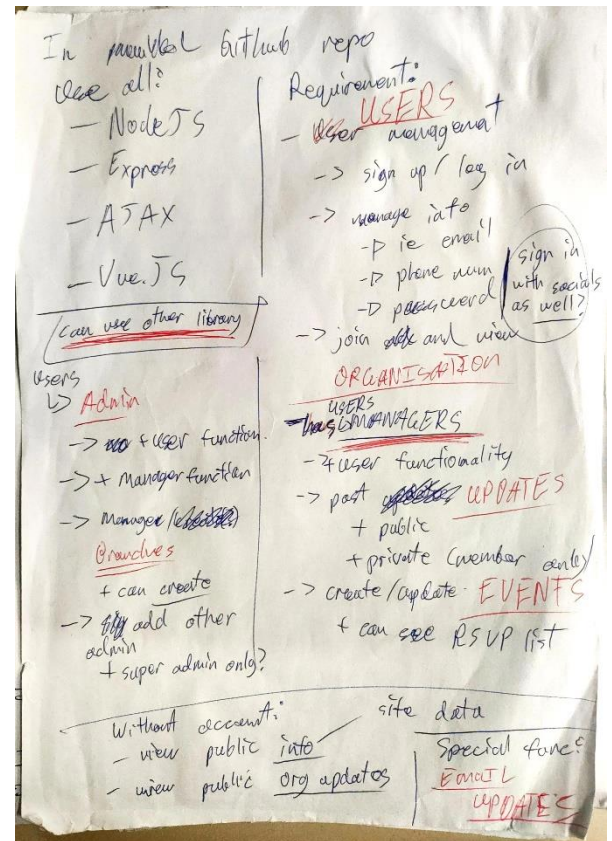 In provided GitHub repo
Use all:
- NodeJS
- Express
- AJAX
- Vue.JS
can use other library
Users
↳ Admin
-> + user function
-> + Manager function
-> Manage /
Branches
+ can create
-> add other
admin
+ super admin only?
Requirement:
USERS
- User management
-> sign up / log in
-> manage info
-▷ ie email
-▷ phone num
-▷ password
sign in
with socials
as well?
-> join and view
ORGANISATION
USERS
↳ MANAGERS
-> + user functionality
-> post UPDATES
+ public
+ private (member only)
-> create/update EVENTS
+ can see RSVP list
Without account:
- view public info
- view public org updates
site data
Special func:
EMAIL
UPDATES